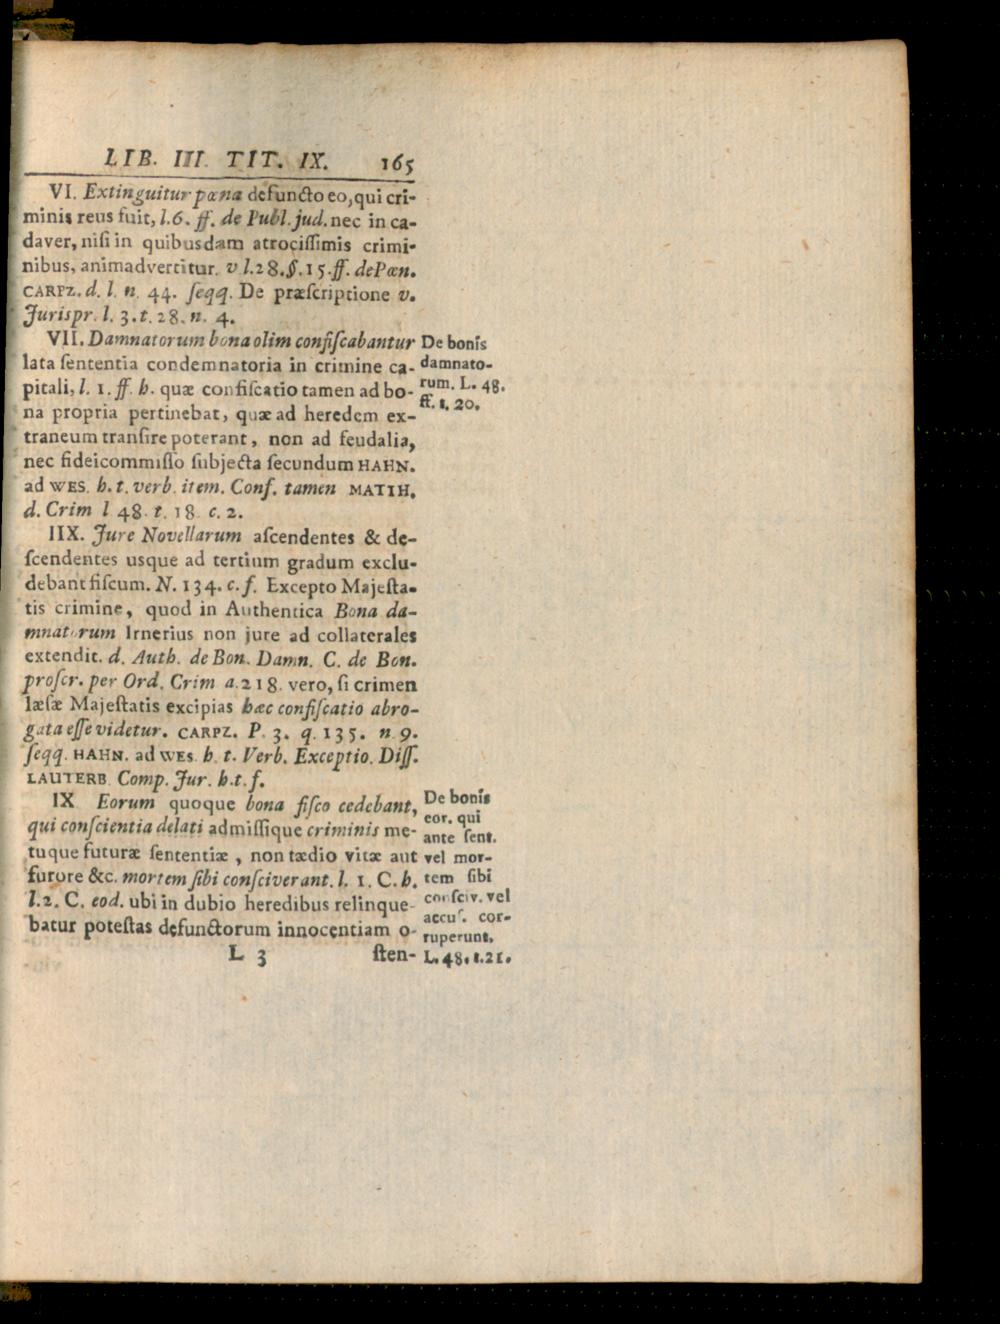 LIB. III. TIT. IX. 165
VI. Extinguitur pœna defuncto eo, qui cri-
minis reus fuit, l. 6. ff. de Publ. jud. nec in ca-
daver, niſi in quibusdam atrociſſimis crimi-
nibus, animadvertitur. v l. 28. §. 15. ff. de Pœn.
CARPZ. d. l. n. 44. ſeqq. De præſcriptione v.
Jurispr. l. 3. t. 28. n. 4.
VII. Damnatorum bona olim confiſcabantur
lata ſententia condemnatoria in crimine ca-
pitali, l. 1. ff. h. quæ confiſcatio tamen ad bo-
na propria pertinebat, quæ ad heredem ex-
traneum tranſire poterant, non ad feudalia,
nec fideicommiſſo ſubjecta ſecundum HAHN.
ad WES. h. t. verb. item. Conf. tamen MATTH.
d. Crim l 48. t. 18. c. 2.
De bonis
damnato-
rum. L. 48.
ff. t. 20.
IIX. Jure Novellarum aſcendentes & de-
ſcendentes usque ad tertium gradum exclu-
debant fiſcum. N. 134. c. f. Excepto Majeſta-
tis crimine, quod in Authentica Bona da-
mnatorum Irnerius non jure ad collaterales
extendit. d. Auth. de Bon. Damn. C. de Bon.
proſcr. per Ord. Crim a. 218. vero, ſi crimen
læſæ Majeſtatis excipias hæc confiſcatio abro-
gata eſſe videtur. CARPZ. P. 3. q. 135. n 9.
ſeqq. HAHN. ad WES. h. t. Verb. Exceptio. Diſſ.
LAUTERB. Comp. Jur. h. t. f.
IX Eorum quoque bona fiſco cedebant,
qui conſcientia delati admiſſique criminis me-
tuque futuræ ſententiæ, non tædio vitæ aut
furore &c. mortem ſibi conſciverant. l. 1. C. h.
l. 2. C. eod. ubi in dubio heredibus relinque-
batur poteſtas defunctorum innocentiam o-
De bonis
eor. qui
ante ſent.
vel mor-
tem ſibi
conſciv. vel
accuſ. cor-
ruperunt.
L. 48. t. 21.
L 3 ſten-